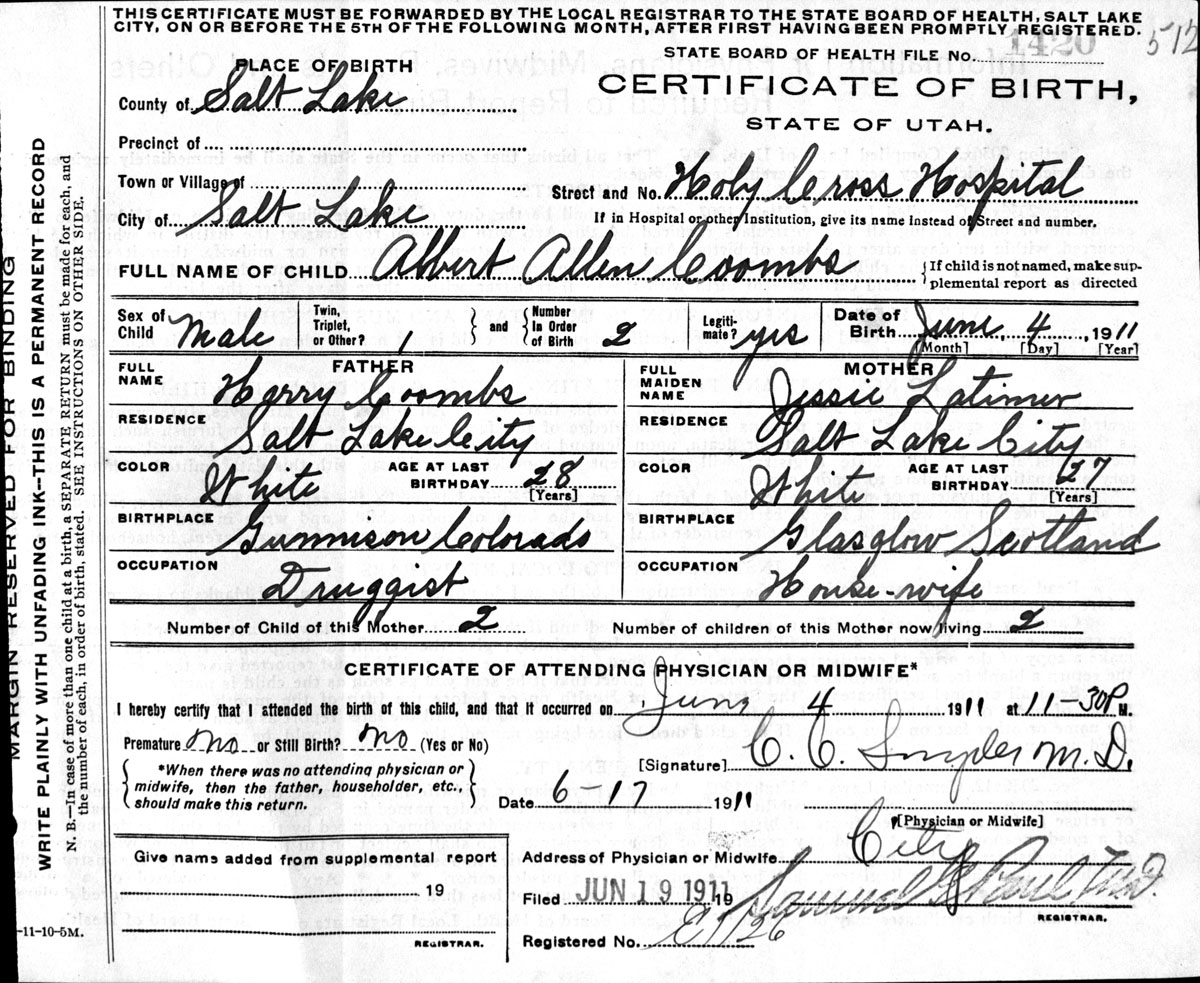 THIS CERTIFICATE MUST BE FORWARDED BY THE LOCAL REGISTRAR TO THE STATE BOARD OF HEALTH, SALT LAKE
CITY, ON OR BEFORE THE 5TH OF THE FOLLOWING MONTH, AFTER FIRST HAVING BEEN PROMPTLY REGISTERED.
512
STATE BOARD OF HEALTH FILE No. 1420
PLACE OF BIRTH
CERTIFICATE OF BIRTH,
STATE OF UTAH.
County of Salt Lake
Precinct of
Town or Village of
Street and No. Holy Cross Hospital
City of Salt Lake
If in Hospital or other Institution, give its name instead of Street and number.
FULL NAME OF CHILD Albert Allen Coombs
{ If child is not named, make sup-
plemental report as directed
Sex of Child Male
Twin, Triplet, or Other? 1
} and { Number In Order of Birth 2
Legiti- mate? yes
Date of Birth June, 4 1911
[Month] [Day] [Year]
FATHER
FULL NAME Harry Coombs
RESIDENCE Salt Lake City
COLOR White AGE AT LAST BIRTHDAY 28
[Years]
BIRTHPLACE Gunnison Colorado
OCCUPATION Druggist
MOTHER
FULL MAIDEN NAME Jessie Latimer
RESIDENCE Salt Lake City
COLOR White AGE AT LAST BIRTHDAY 27
[Years]
BIRTHPLACE Glasglow Scotland
OCCUPATION House-wife
Number of Child of this Mother 2 Number of children of this Mother now living 2
CERTIFICATE OF ATTENDING PHYSICIAN OR MIDWIFE*
I hereby certify that I attended the birth of this child, and that it occurred on June 4 1911 at 11-30P M.
Premature no or Still Birth? no (Yes or No)
[Signature] C. C. Snyder M.D.
{ *When there was no attending physician or
midwife, then the father, householder, etc.,
should make this return. }
Date 6-17 1911
[Physician or Midwife]
Give name added from supplemental report
19
REGISTRAR.
Address of Physician or Midwife City
Filed JUN 19 1911 19 Samuel G Paul M.D.
REGISTRAR.
Registered No. E1126
-11-10-5M.
MARGIN RESERVED FOR BINDING
WRITE PLAINLY WITH UNFADING INK—THIS IS A PERMANENT RECORD
N. B.—In case of more than one child at a birth, a SEPARATE RETURN must be made for each, and
the number of each, in order of birth, stated. SEE INSTRUCTIONS ON OTHER SIDE.